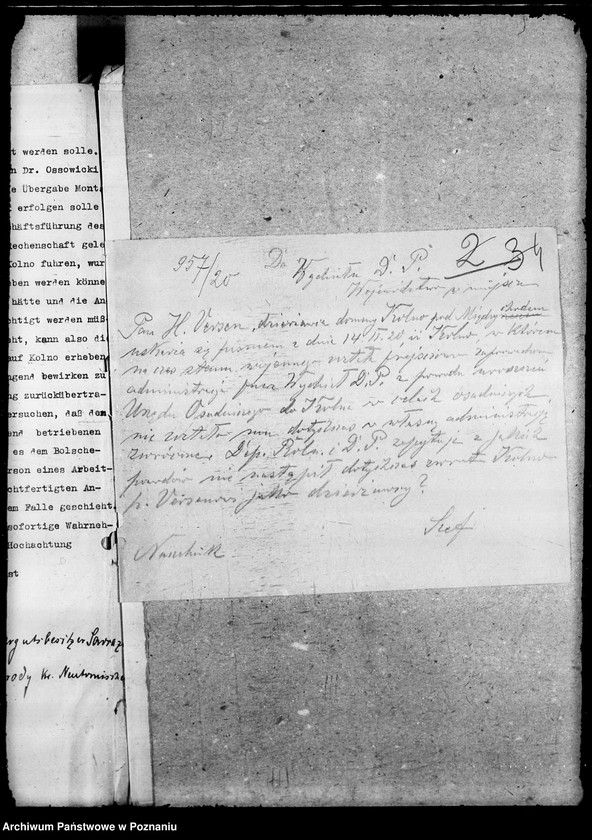 t werden solle.
n Dr. Ossowicki
e Übergabe Mont
erfolgen solle
häftsführung des
echenschaft gele
Kolno fuhren, wur
eben werden könne
hätte und die An
chtigt werden müß
eht, kann also die
auf Kolno erheben
ngend bewirken zu
ng zurückübertra-
ersuchen, daß dem
end betriebenen
es dem Bolsche-
rson eines Arbeit-
chtfertigten An-
em Falle geschieht
sofortige Wahrneh-
Hochachtung
st
ergutsbesitzer
rody Kr. Neutomischel
957/20
Do Wydziału D. P.
2 34
Województwo w miejscu
Pan H. Versen, dzierżawca domeny Kolno pod Międzychodem
uskarża się pismem z dnia 14 II. 20 iż Kolno, w którem
na czas stanu wojennego
administracji przez Wydział D. P. z powodu
Urzędu Osadniczego do Kolna w celach osadniczych,
nie zostało mu dotychczas w własną administrację
zwrócone. Dep. Roln. i D. P. zapytuje z jakich
powodów nie nastąpił dotychczas zwrot Kolna
p. Versenowi jako dzierżawcy?
Szef
Naczelnik
Archiwum Państwowe w Poznaniu